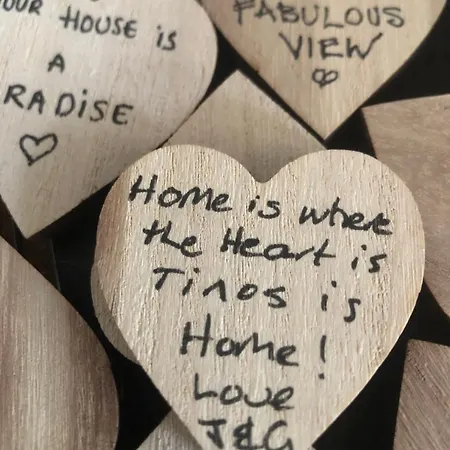 YOUR HOUSE is
A
PARADiSE
FABULOUS
VIEW
Home is where
the Heart is
Tinos is
Home!
Love
J&G